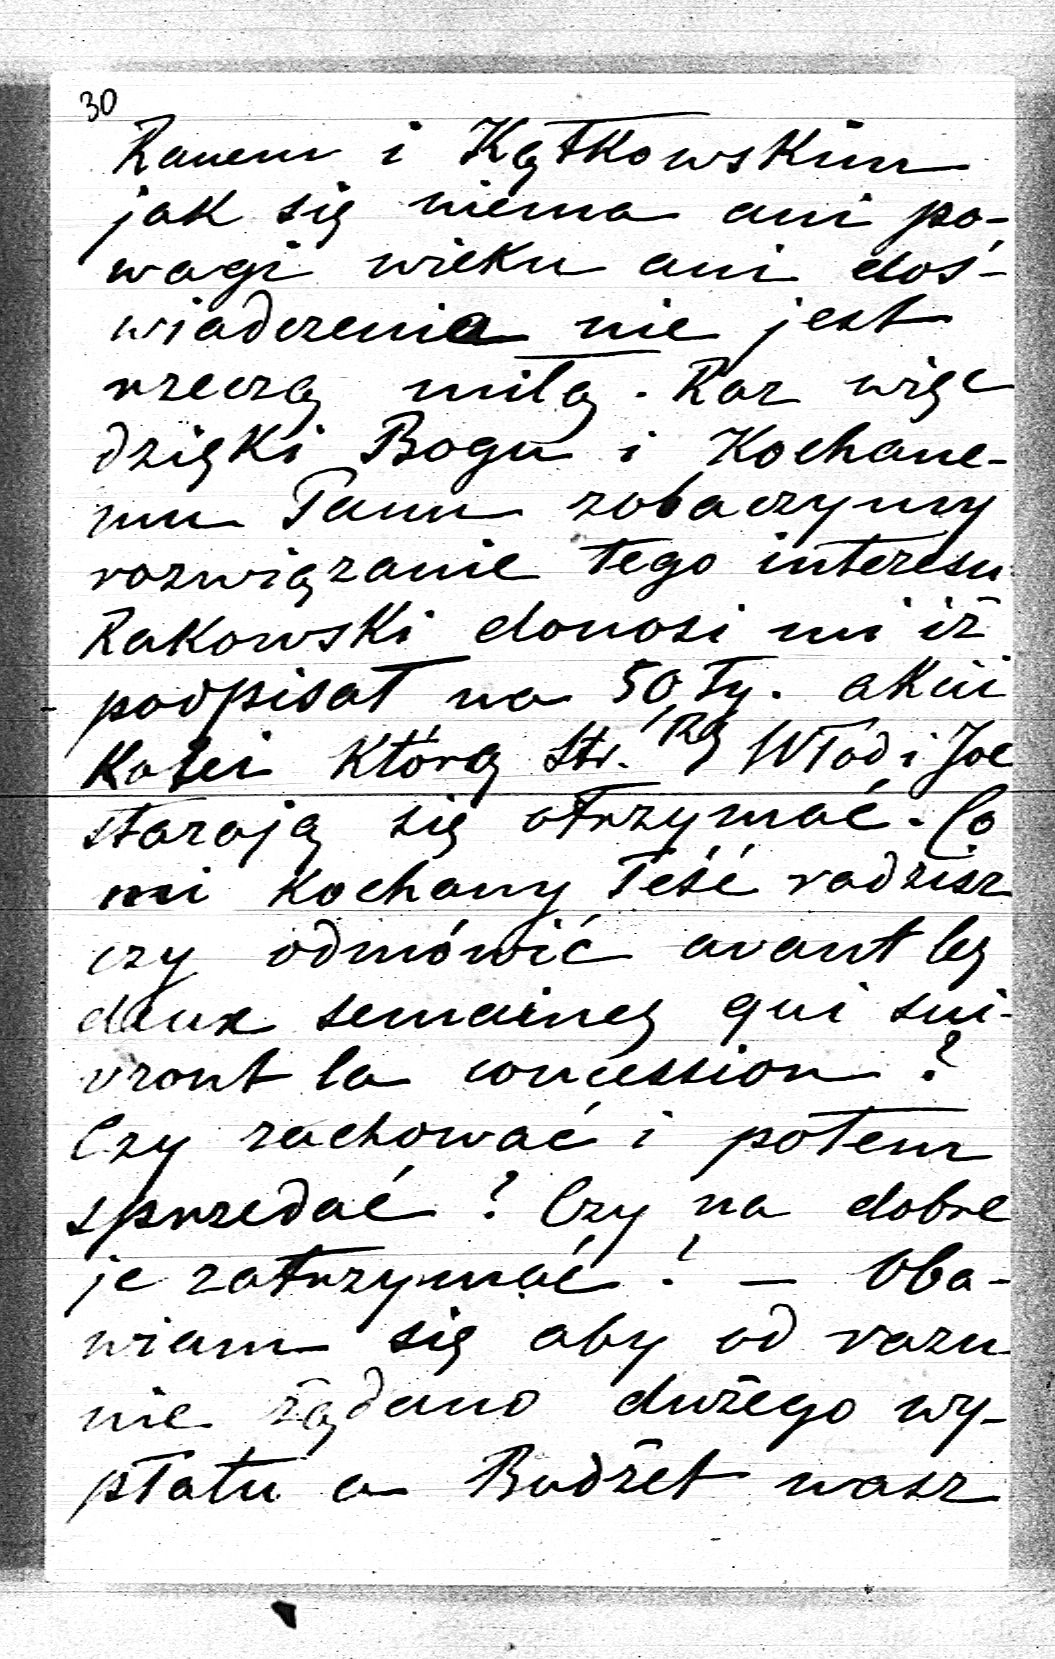 30
Rauem i Kątkowskim
jak się niema ani po-
wagi wieku ani doś-
wiadczenia nie jest
rzeczą miłą. Raz więc
dzięki Bogu i Kochane-
mu Panu zobaczymy
rozwiązanie tego interesu
Rakowski donosi mi iż
podpisał na 50 Ty. akcii
Kolei Którą Str. Włod i Joe
starają się otrzymać. Co
mi Kochany Teść radzisz
czy odmówić avant les
deux semaines qui sui-
vront la concession?
Czy zachować i potem
sprzedać? Czy na dobre
je zatrzymać? — Oba-
wiam się aby od razu
nie żądano dużego wy-
płatu a Budżet wasz